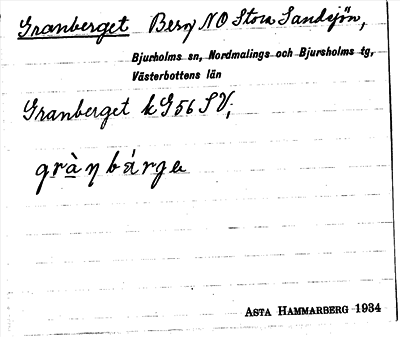 Granberget Berg NO Stora Sandsjön,
Bjurholms sn, Nordmalings och Bjursholms tg,
Västerbottens län
Granberget kG56SV,
grànbárge
ASTA HAMMARBERG 1934